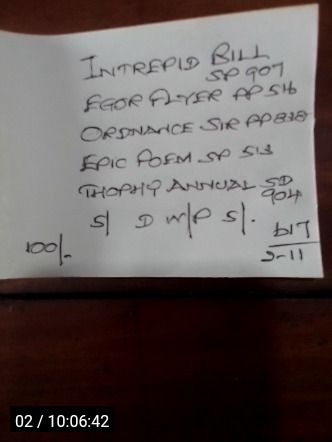 INTREPID BILL
SP 907
EGOR FLYER PP 516
ORDNANCE SIR PP 838
EPIC POEM SP 513
THOPHY ANNUAL SD
904
S/ D W/P S/.
100/-
617
2-11
02 / 10:06:42